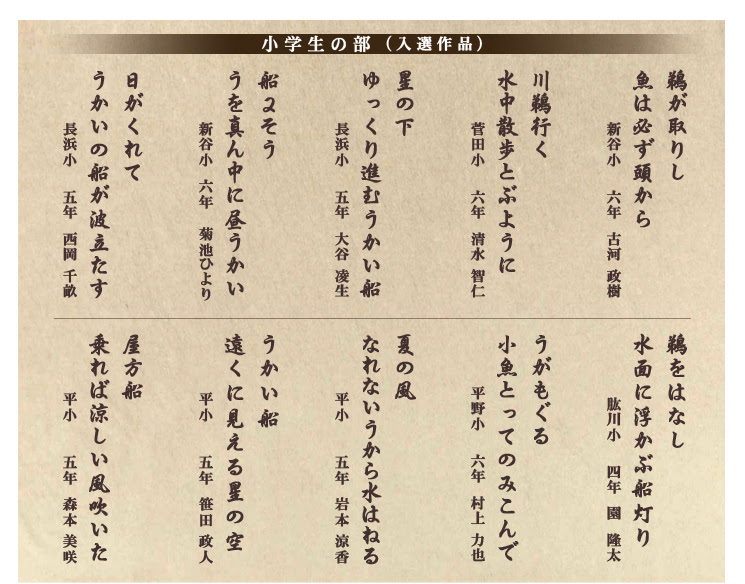 小学生の部（入選作品）
鵜が取りし
魚は必ず頭から
新谷小　六年　古河 政樹
川鵜行く
水中散歩とぶように
菅田小　六年　清水 智仁
星の下
ゆっくり進むうかい船
長浜小　五年　大谷 凌生
船2そう
うを真ん中に昼うかい
新谷小　六年　菊池ひより
日がくれて
うかいの船が波立たす
長浜小　五年　西岡 千畝
鵜をはなし
水面に浮かぶ船灯り
肱川小　四年　園 隆太
うがもぐる
小魚とってのみこんで
平野小　六年　村上 力也
夏の風
なれないうから水はねる
平小　五年　岩本 涼香
うかい船
遠くに見える星の空
平小　五年　笹田 政人
屋方船
乗れば涼しい風吹いた
平小　五年　森本 美咲